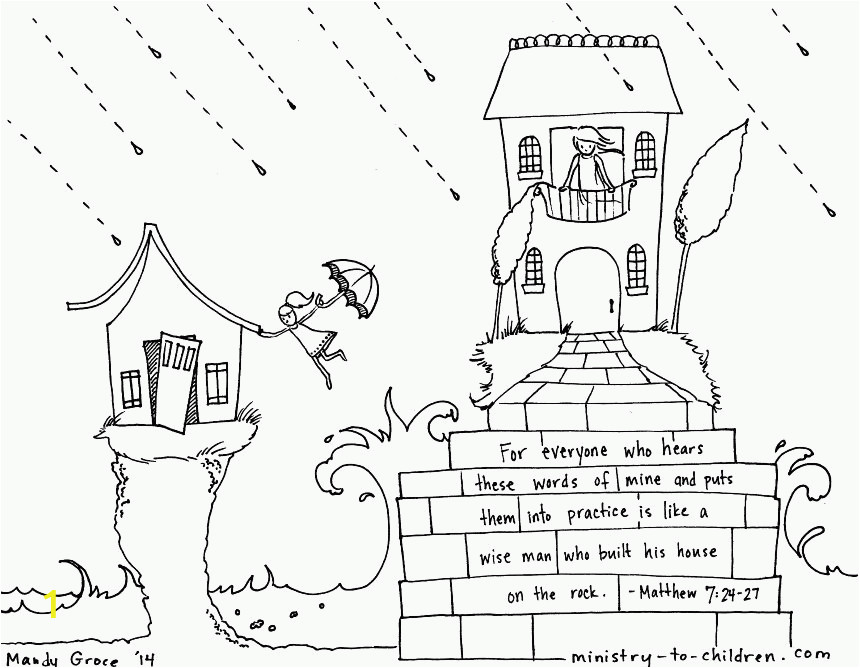 For everyone who hears
these words of mine and puts
them into practice is like a
wise man who built his house
on the rock. -Matthew 7:24-27
1
Mandy Groce '14
ministry-to-children.com